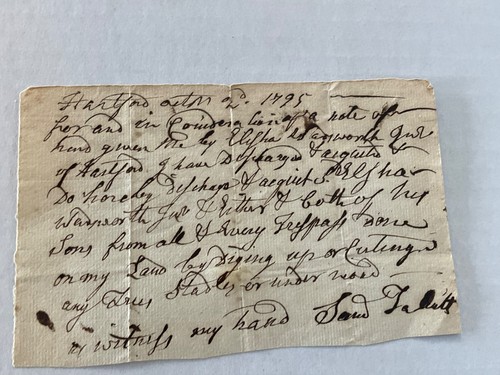 Hartford octor 2d. 1795
for and in Consideration of a note of
hand given me by Elisha Wadsworth Junr
of Hartford I have Discharged & acquitted &
Do hereby Discharge & acquit Sd Elisha
Wadsworth Junr & Either & both of his
Sons from all & Every Trespass done
on my Land by Diging up or Cutting
any Trees Stadles or under wood
as witness my hand Saml Talcott